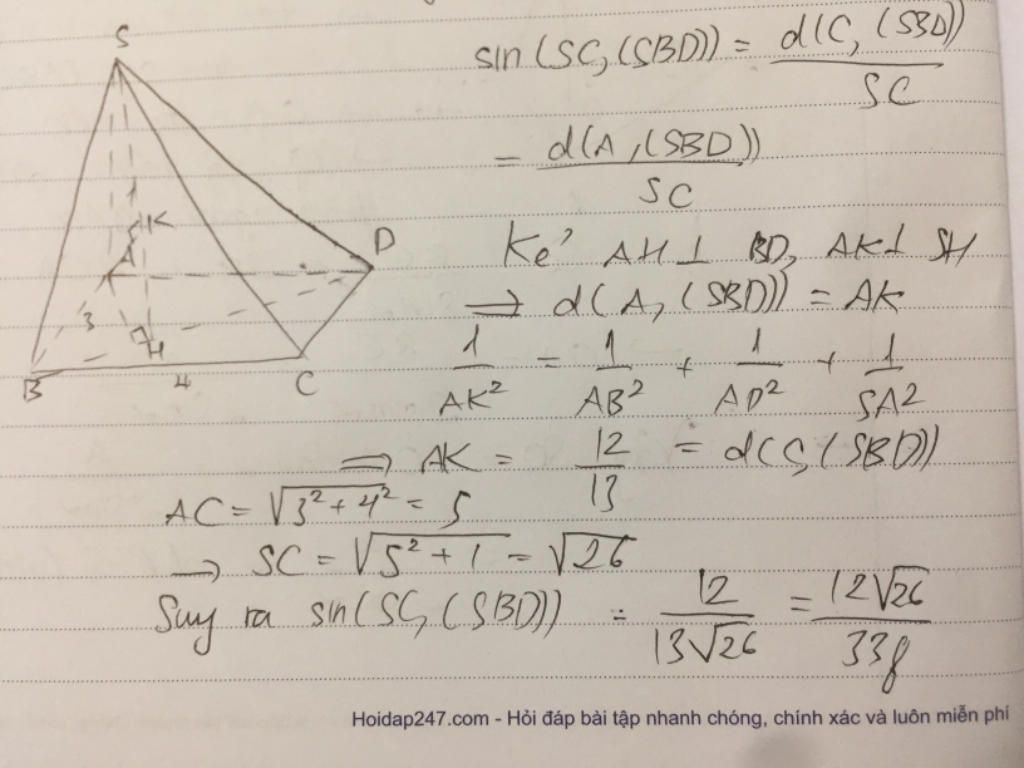 S
sin(SC,(SBD)) = d(C,(SBD)) / SC
= d(A,(SBD)) / SC
K
A
D
3
H
B
4
C
Kẻ AH⊥ BD, AK⊥ SH
⇒ d(A,(SBD)) = AK
1/AK² = 1/AB² + 1/AD² + 1/SA²
⇒ AK = 12/13 = d(C,(SBD))
AC = √(3²+4²) = 5
→ SC = √(5²+1) = √26
Suy ra sin(SC,(SBD)) = 12/(13√26) = 12√26/338
Hoidap247.com - Hỏi đáp bài tập nhanh chóng, chính xác và luôn miễn phí